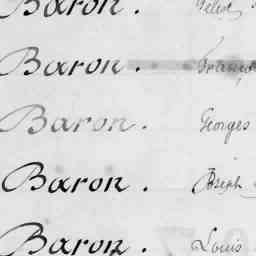 Baron. Felix
Baron. Franço
Baron. Georges
Baron. Joseph
Baron. Louis